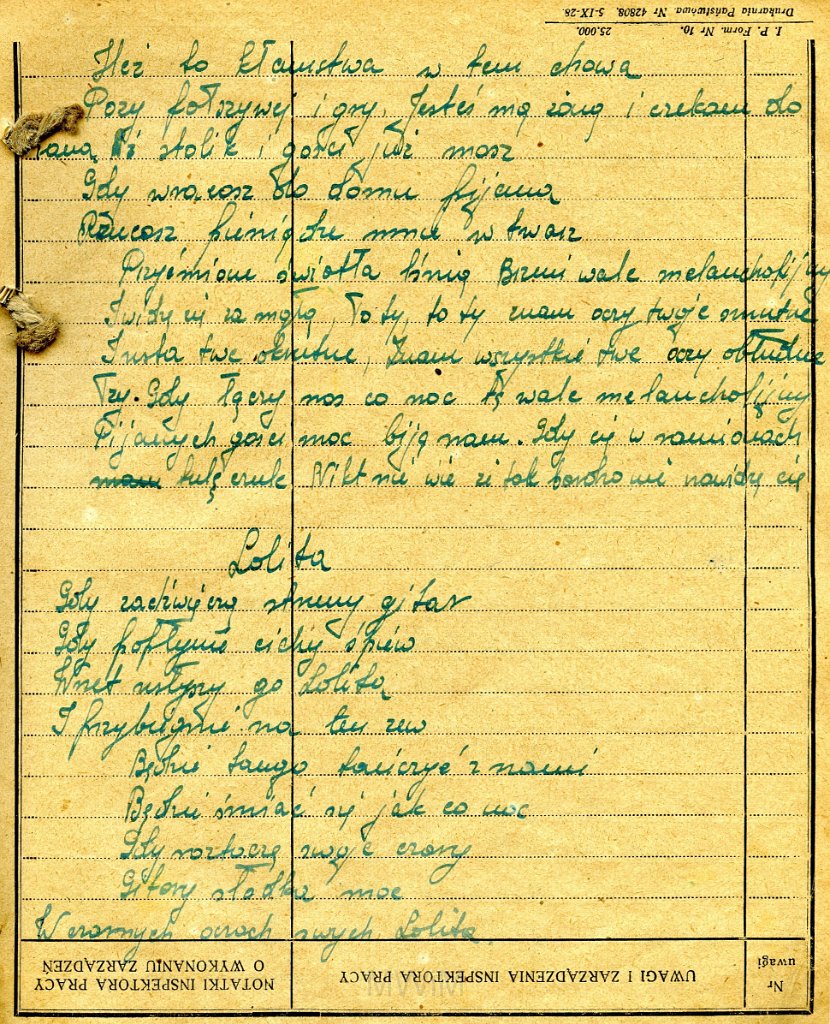 Drukarnia Państwowa. Nr 42808. 5-IX-28.
I. P. Form. Nr 10. 25.000.
Ileż to kłamstwa w tem chowa
Pozy fałszywej i gry. Jesteś mą żoną i czekam do
rana stolik i gości już masz
Gdy wracasz do domu pijana
Rzucasz pieniądze mnie w twarz
Przyćmione światła lśnią Brzmi walc melancholijny
I widzę cię za mgłą, to ty, to ty znam oczy twoje smutne
I usta twe okrutne, Znam wszystkie twe oczy obłudne
łzy. Gdy łączy nas co noc tę walc melancholijny
Pijanych gości moc biją nam. Gdy cię w ramionach
mam tulę czule Nikt nie wie że tak bardzo nie nawidzę cię
Lolita
Gdy zadźwięczą struny gitar
Gdy popłynie cichy śpiew
Wnet usłyszy go Lolita
I przybiegnie na ten zew
Będzie tango tańczyć z nami
Będzie śmiać się jak co noc
Gdy roztoczą swoje czary
Gitary słodka moc
W czarnych oczach swych Lolita
NOTATKI INSPEKTORA PRACY O WYKONANIU ZARZĄDZEŃ
UWAGI I ZARZĄDZENIA INSPEKTORA PRACY
Nr uwagi